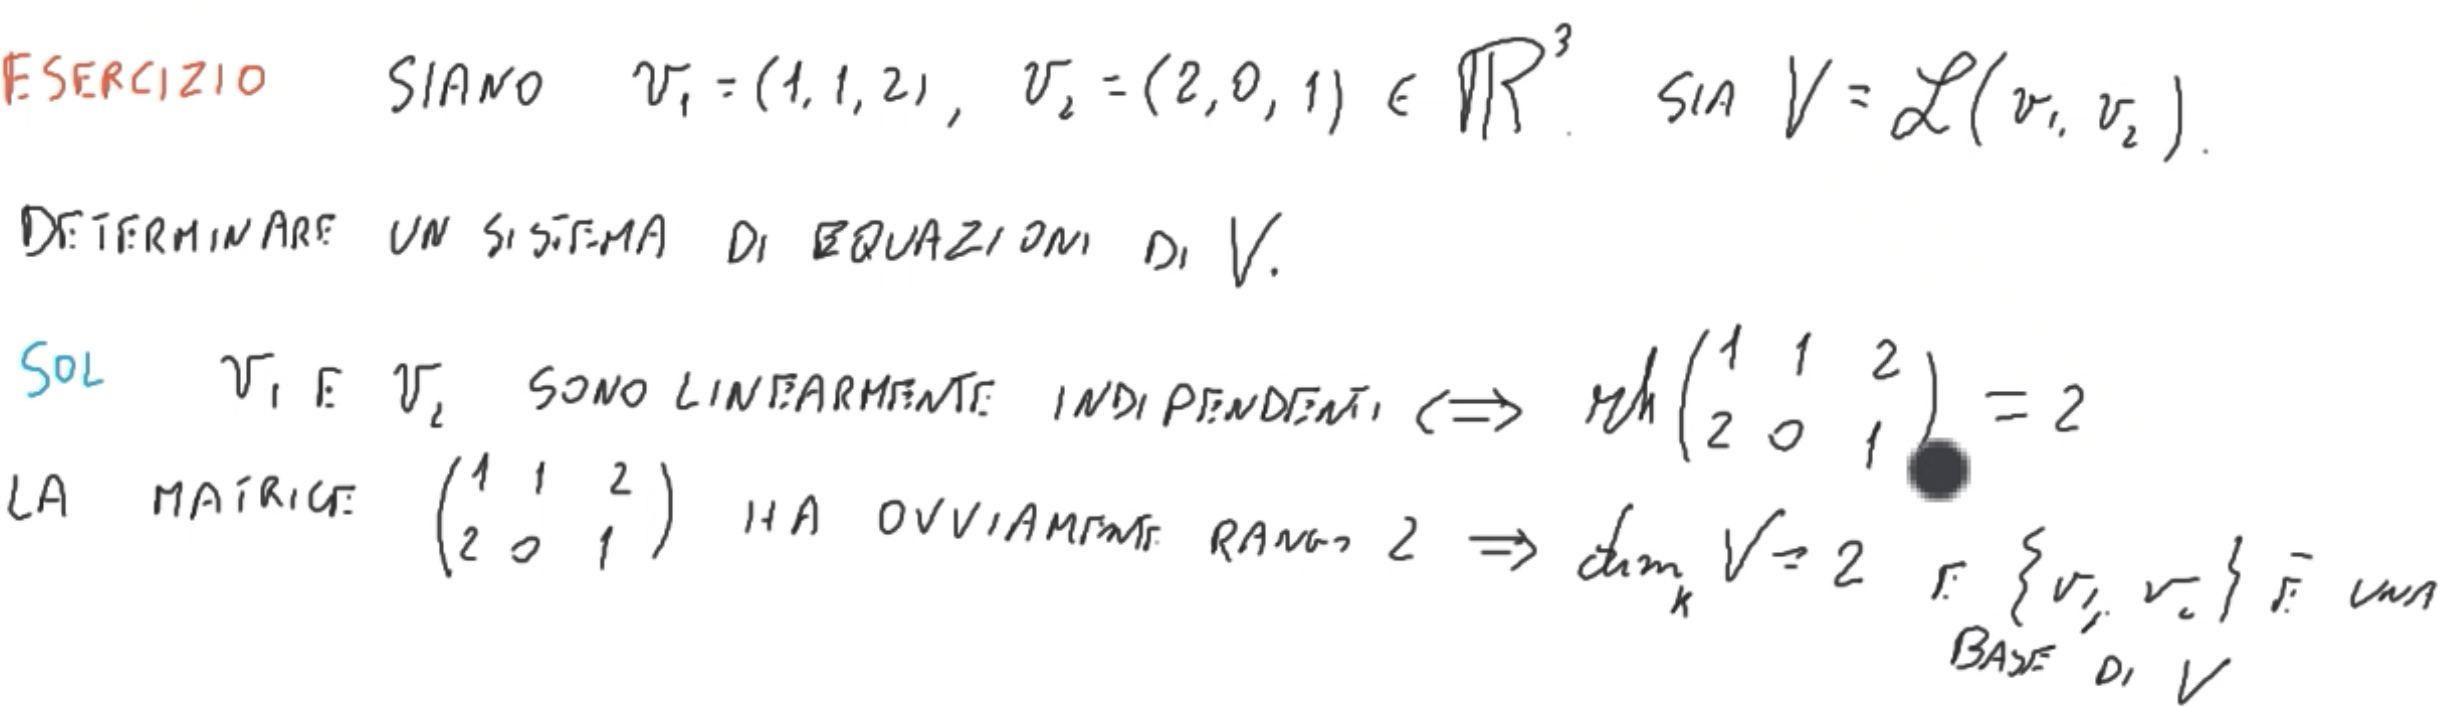 ESERCIZIO SIANO v₁ = (1, 1, 2), v₂ = (2, 0, 1) ∈ ℝ³. SIA V = ℒ(v₁, v₂).
DETERMINARE UN SISTEMA DI EQUAZIONI DI V.
SOL v₁ E v₂ SONO LINEARMENTE INDIPENDENTI ⟺ rk(1 1 2 / 2 0 1) = 2
LA MATRICE (1 1 2 / 2 0 1) HA OVVIAMENTE RANGO 2 ⟹ dim_K V = 2 E {v₁, v₂} È UNA
BASE DI V